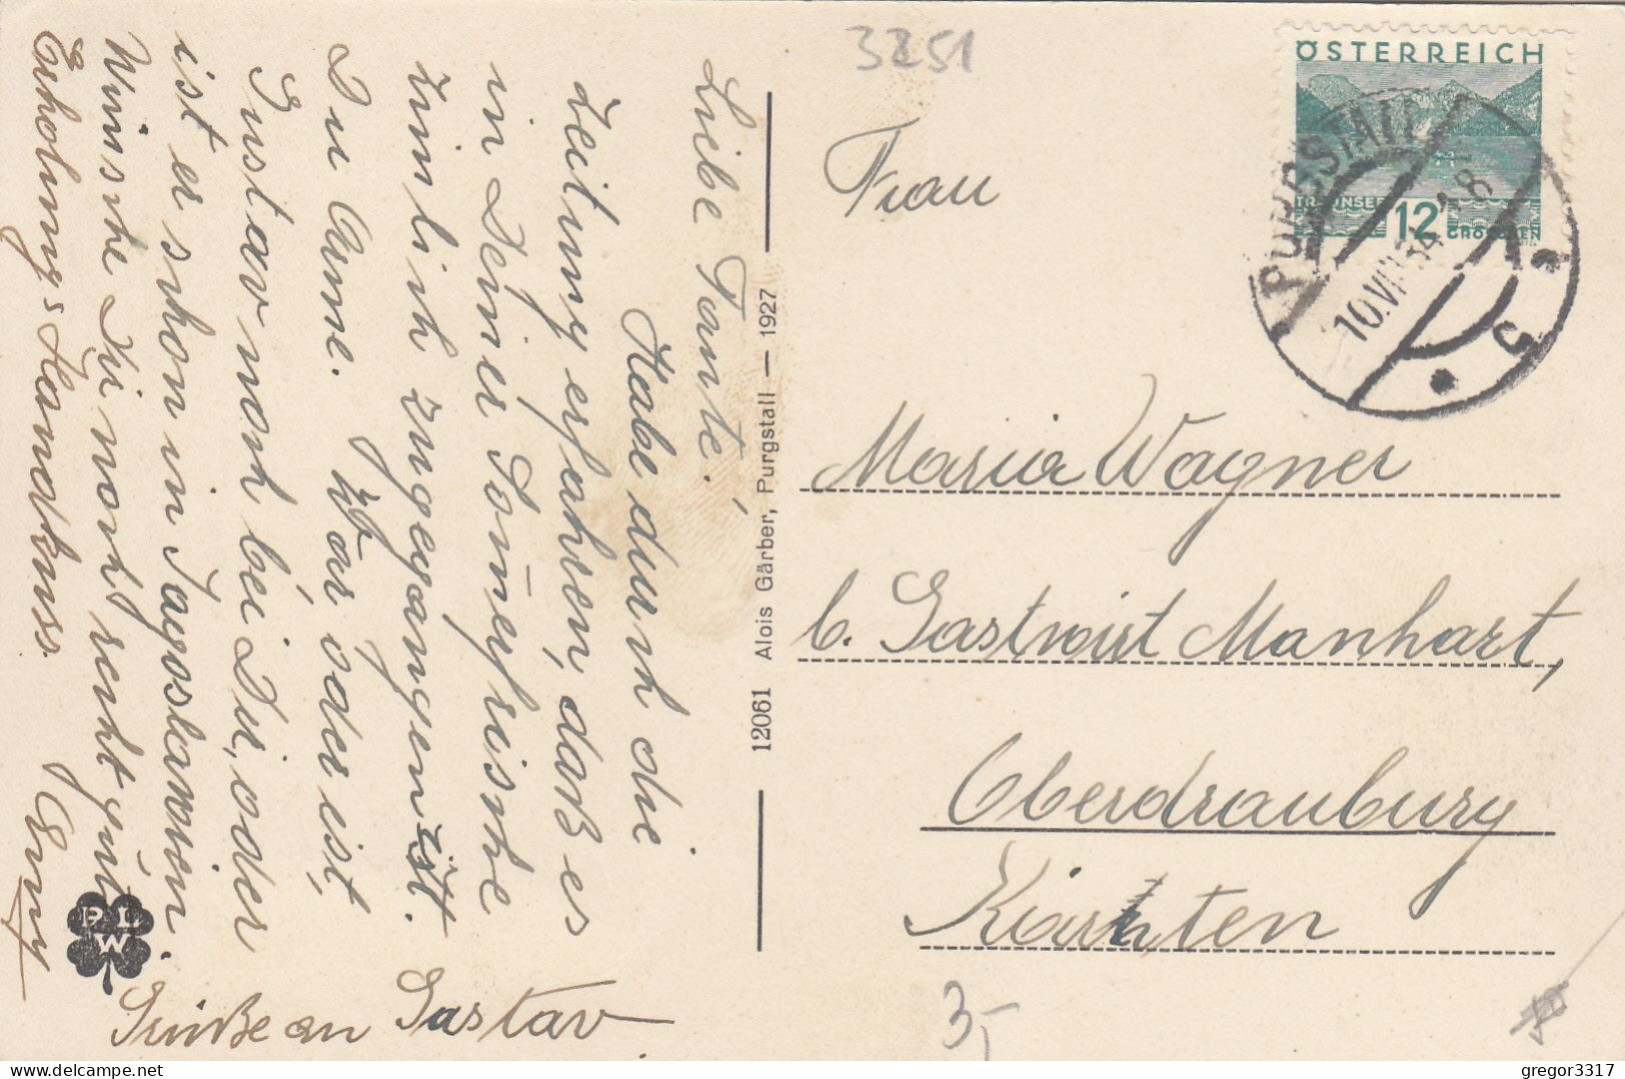 3251
ÖSTERREICH
TRAUNSEE 12 GROSCHEN
PURGSTALL
10.VIII.34 * 8
Frau
Maria Wagner
b. Gastwirt Manhart,
Oberdrauburg
Kärnten
3,-
12061 Alois Gärber, Purgstall — 1927
Liebe Tante!
Habe durch die
Zeitung erfahren, daß es
in Deiner Somerfrische
zimlich zugegangen ist.
Du Arme.
Gustav noch bei Dir, oder
ist er schon in Jugoslawien.
Wünsche Dir noch recht gute
Erholung. Handkuss.
Erny
Grüße an Gustav
P L W
gregor3317